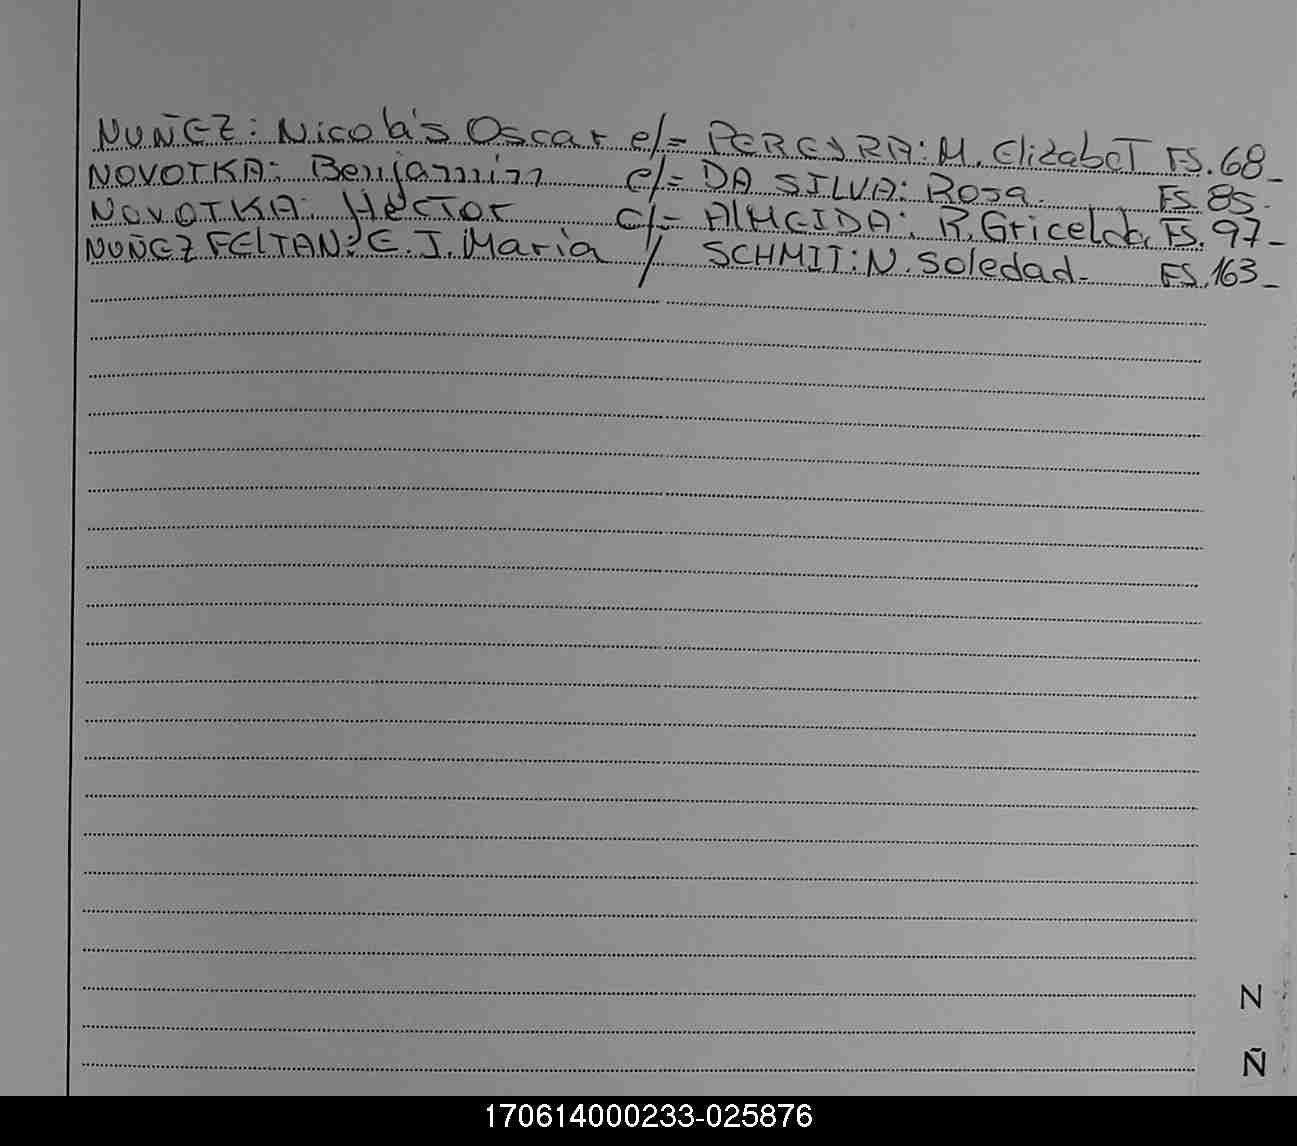 NUÑEZ: Nicolás Oscar c/= PEREYRA: M. ElizabeT FS. 68_
NOVOTKA: Benjamin c/= DA SILVA: Rosa. FS. 85.
NOVOTKA: HécTor c/= AlMEIDA: R. Gricelda FS. 97_
NUÑEZ FElTAN: E. J. María / SCHMIT: N. Soledad_ FS. 163_
N
Ñ
170614000233-025876